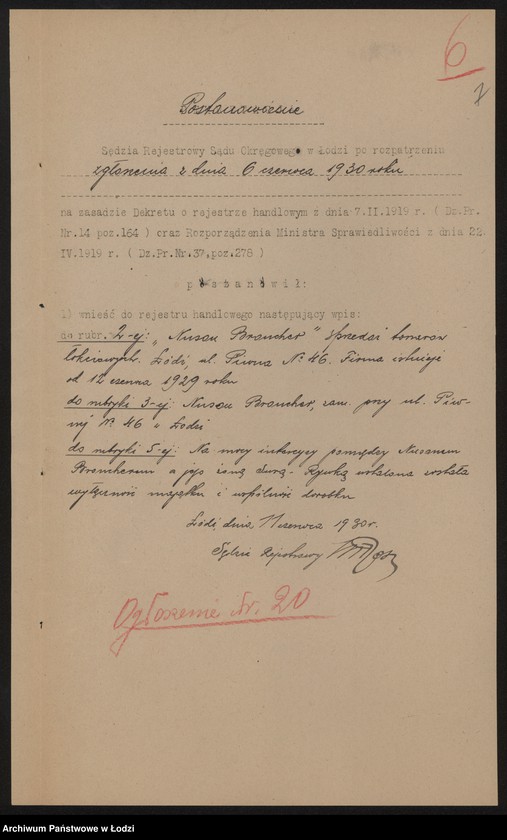 6
7
Postanowienie
Sędzia Rejestrowy Sądu Okręgowego w Łodzi po rozpatrzeniu
zgłoszenia z dnia 6 czerwca 1930 roku
na zasadzie Dekretu o rejestrze handlowym z dnia 7.II.1919 r. ( Dz.Pr.
Nr.14 poz.164 ) oraz Rozporządzenia Ministra Sprawiedliwości z dnia 22
IV.1919 r. ( Dz.Pr.Nr.37,poz.278 )
postanowił:
1) wnieść do rejestru handlowego następujący wpis:
do rubr. 2-ej: „Nusan Braucher" sprzedaż towarów
łokciowych. Łódź, ul. Piwna № 46. Firma istnieje
od 12 czerwca 1929 roku
do rubryki 3-ej: Nusan Braucher, zam. przy ul. Piw-
nej № 46 w Łodzi
do rubryki 5-ej: Na mocy intercyzy pomiędzy Nusanem
Braucherem a jego żoną Surą-Rywką ustalona została
wyłączność majątku i wspólność dorobku
Łódź dnia, 11 czerwca 1930 r.
Sędzia Rejestrowy
Ogłoszenie Nr. 20
Archiwum Państwowe w Łodzi